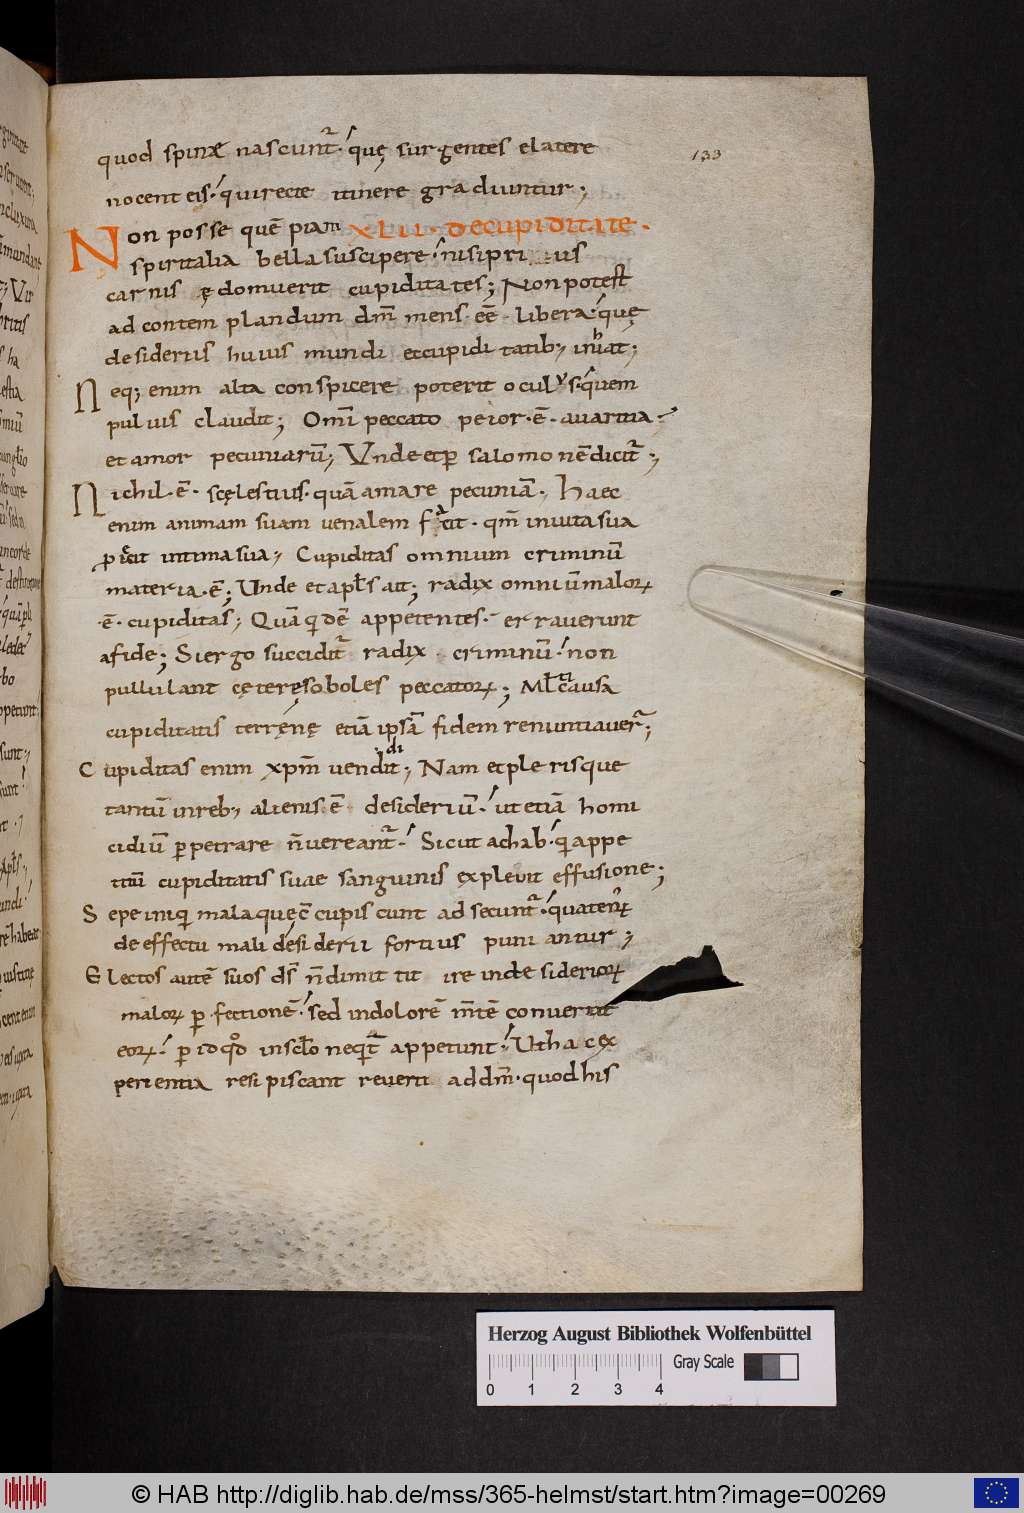 133
quod spinæ nascunt᷑. quę surgentes e latere
nocent eis. qui recte itinere gradiuntur;
Non posse quē piam XLII. De cupiditate.
spiritalia bella suscipere. nisi pri us
carnis ędomuerit cupiditates; Non potest
ad contemplandum dm̄ mens. eē. libera. quę
desideriis huius mundi et cupiditatib; inhiat;
Neq; enim alta conspicere poterit oculus. quem
puluis claudit; Omī peccato peior. ē. auaritia.
et amor pecuniarū; Vnde et p̲ salomonē dicit᷑;
Nichil. ē. scęlestius. quā amare pecuniā. Haec
enim animam suam uenalem facit. qm̄ in uita sua
p̲iecit intima sua; Cupiditas omnium criminū
materia. ē; Unde et apl̄s ait; radix omniū maloꝝ
. ē. cupiditas; Quā qidē appetentes. erraverunt
a fide; Si ergo succidit᷑ radix criminū. non
pullulant cęterę soboles peccatoꝝ; Ml̄ti causa
cupiditatis terręnę etiā ipsā fidem renuntiauer᷑;
Cupiditas enim xpm̄ uendidit; Nam et plerisque
tantū in reb; alienis ē desideriū. ut etiā homi
cidiū p̲petrare n̄ uereant᷑. Sicut achab. qi appe
titū cupiditatis suae sanguinis expleuit effusione;
Sepe iniqi mala quę c̄cupiscunt adsecunt᷑. quatenꝰ
de effectu mali desiderii fortius puniantur;
Electos autē suos ds̄ n̄ dimittit ire in desiderioꝝ
maloꝝ p̲fectionē. sed in dolorē m̄tē conuertit
eoꝝ. p̲ id qd̄ in scl̄o neqit᷑ appetunt. Ut hac ex
perientia resipiscant reuerti ad dm̄. quod his
Herzog August Bibliothek Wolfenbüttel
Gray Scale
0 1 2 3 4
© HAB http://diglib.hab.de/mss/365-helmst/start.htm?image=00269